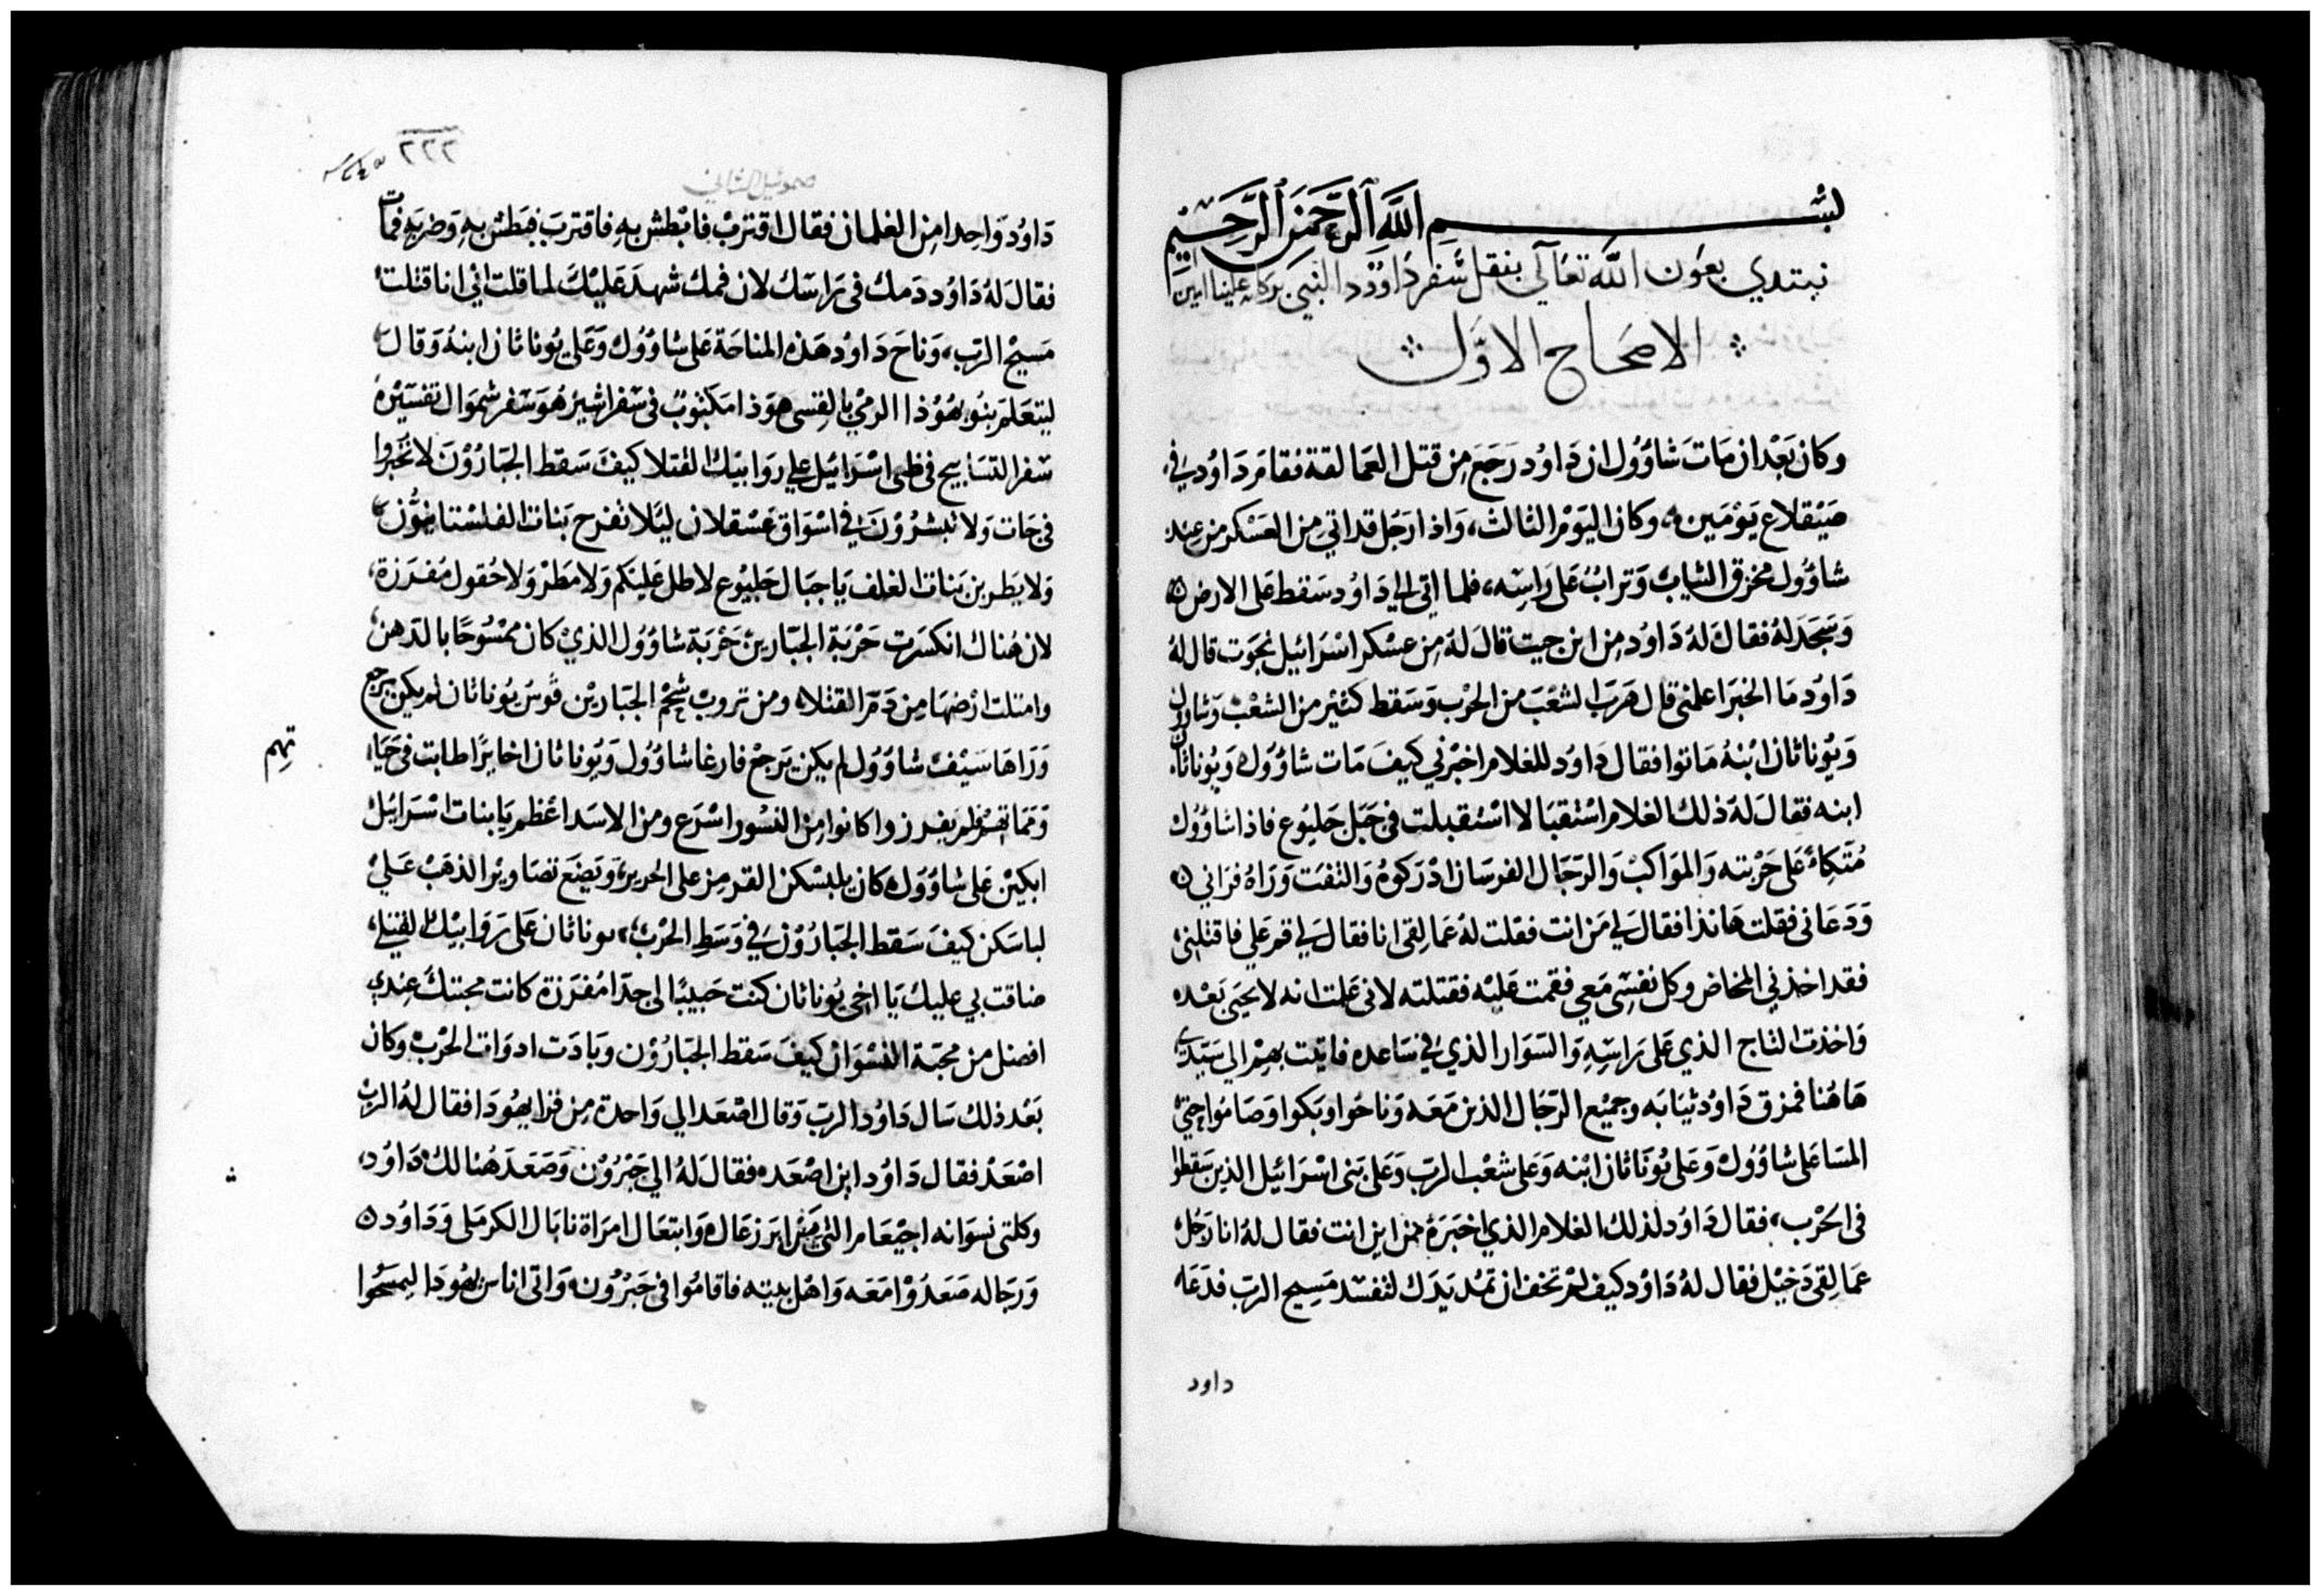 بسم الله الرحمن الرحيم
نبتدي بعون الله تعالي بنقل سفر داوود النبي بركاته علينا امين
الاصحاح الاول
وكان بعد ان مات شاؤول ان داود رجع من قتل العمالقة فقام داود في
صيقلاع يومين، وكان اليوم الثالث، واذا رجل قد اتي من العسكر من عند
شاؤول مخرق الثياب وتراب على راسه، فلما اتى الي داود سقط على الارض
وسجد له فقال له داود من اين جيت قال له من عسكر اسرائيل نجوت قال له
داود ما الخبر اعلمني قال هرب الشعب من الحرب وسقط كثير من الشعب وشاول
ويوناثان ابنه ماتوا فقال داود للغلام اخبرني كيف مات شاؤول ويوناثان
ابنه فقال له ذلك الغلام استقبالا استقبلت في جبل جلبوع فاذا شاؤول
متكاء على حربته والمواكب والرجال الفرسان ادركوه والتفت وراه فراني
ودعاني فقلت هانذا فقال لي من انت فقلت له عمالقي انا فقال لي قم علي فاقتلني
فقد اخذني المخاض وكل نفسي معي فقمت عليه فقتلته لاني علمت انه لا يحيى بعده
واخذت التاج الذي على راسه والسوار الذي في ساعده فاتيت بهم الي سيدي
هاهنا فمزق داود ثيابه وجميع الرجال الذين معه وناحوا وبكوا وصاموا حتى
المسا على شاؤول وعلى يوناثان ابنه وعلى شعب الرب وعلى بني اسرائيل الذين سقطوا
في الحرب، فقال داود لذلك الغلام الذي اخبره من اين انت فقال له انا رجل
عمالقي دخيل فقال له داود كيف لم تخف ان تمد يدك لتفسد مسيح الرب فدعا
داود
٢٢٢
صموئيل الثاني
داود واحدا من الغلمان فقال اقترب فابطش به فاقترب فبطش به وضربه فمات
فقال له داود دمك في راسك لان فمك شهد عليك لما قلت اني انا قتلت
مسيح الرب، وناح داود هذه المناحة على شاؤول وعلى يوناثان ابنه وقال
ليتعلم بنو يهوذا الرمي بالقسى هوذا مكتوب في سفر اشير هو سفر شموال تفسيره
سفر التسابيح في ظبى اسرائيل علي روابيك القتلا كيف سقط الجبارون لا تخبروا
في جات ولا تبشرون في اسواق عسقلان ليلا تفرح بنات الفلستانيون
ولا يطربن بنات الغلف يا جبال جلبوع لا طل عليكم ولا مطر ولا حقول مفرزة،
لان هناك انكسرت حربة الجبارين حربة شاؤول الذي كان ممسوحا بالدهن
وامتلت ارضها من دم القتلاء ومن تروب شحم الجبارين قوس يوناثان لم يكن يرجع
وراها سيف شاؤول لم يكن يرجع فارغا شاؤول ويوناثان اخايرا طابت في حياه
ومماتهم لم يفرزوا كانوا من النسور اسرع ومن الاسد اعظم يا بنات اسرائيل
تهم
ابكين على شاؤول كان يلبسكن القرمز على الحرير، ويضع تصاوير الذهب علي
لباسكن كيف سقط الجبارون في وسط الحرب، يوناثان على روابيك القتيل،
ضاقت بي عليك يا اخي يوناثان كنت حبيبا لي جدا مفرزة كانت محبتك عندي
افضل من محبة النسوان كيف سقط الجبارون وبادت ادوات الحرب وكان
بعد ذلك سال داود الرب وقال اصعد الي واحدة من قرا يهودا فقال له الرب
اصعد فقال داود اين اصعده فقال له الي حبرون وصعد هنالك داود،
وكلتى نسوانه اجيعام التي من ابرزعال وابتعال امراة نابال الكرملى وداود
ورجاله صعدوا معه واهل بيته فاقاموا في حبرون، واتى اناس يهودا ليمسحوا